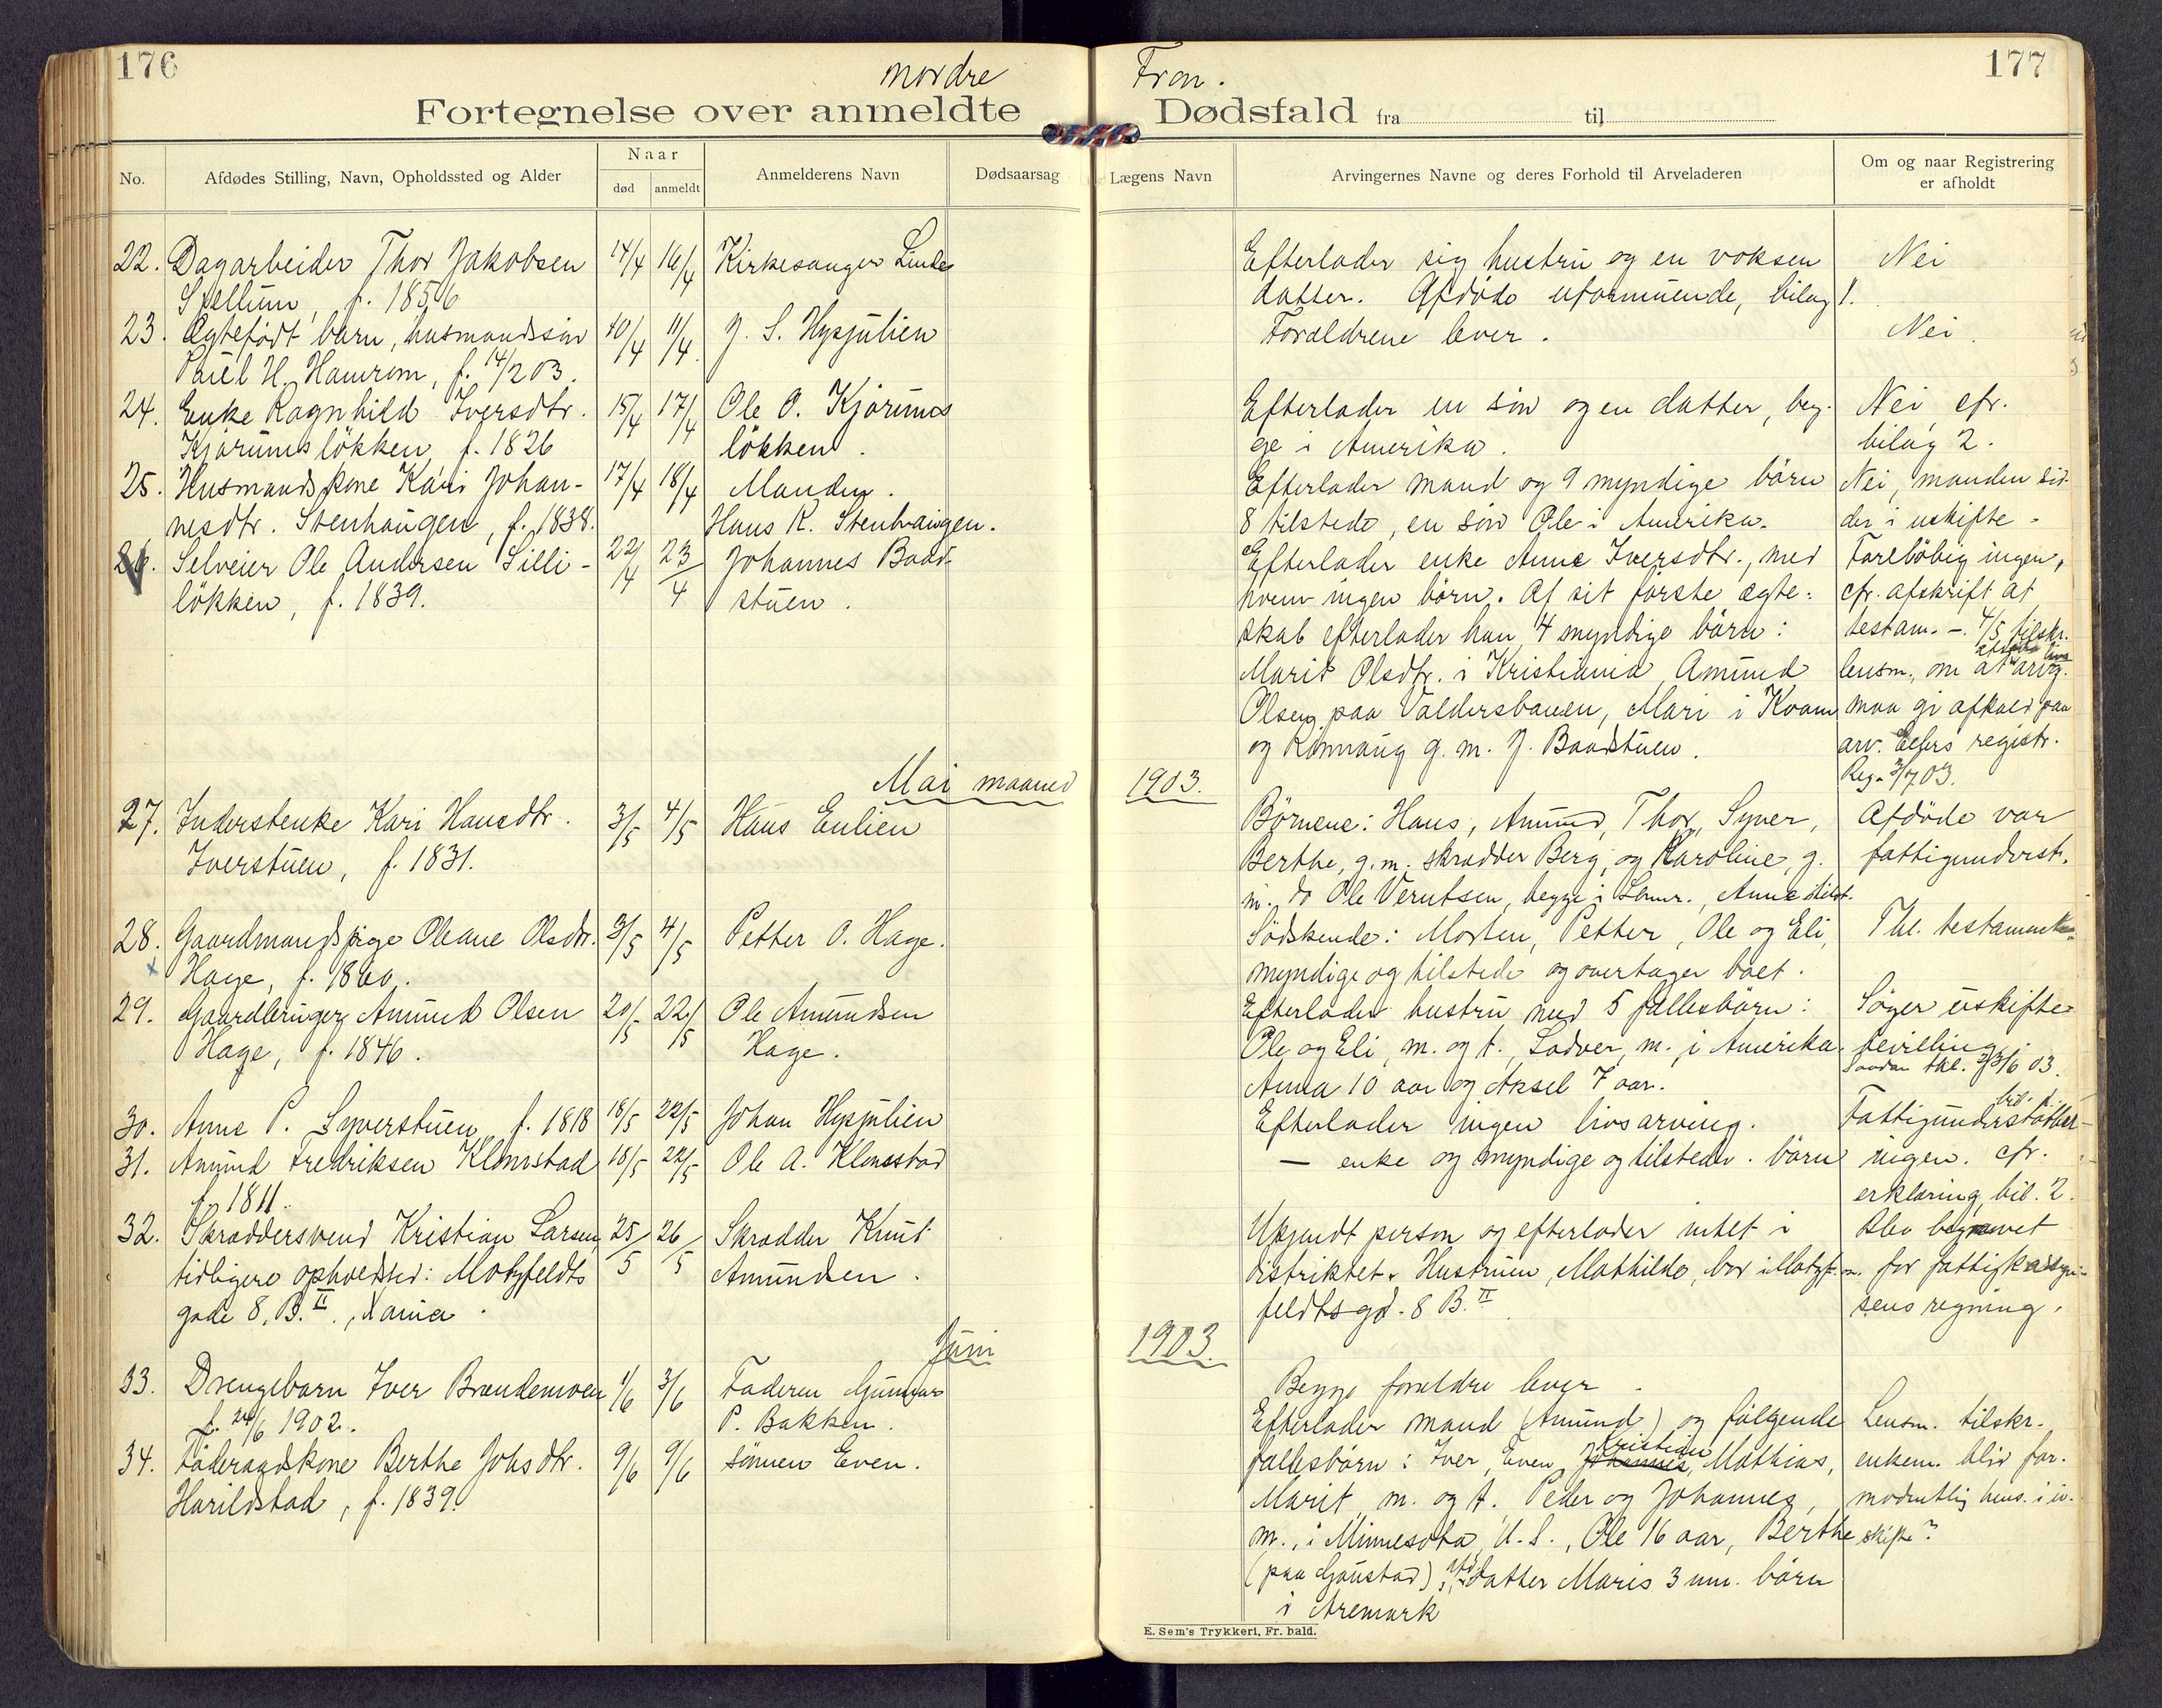 176
nordre
Fron.
177
Fortegnelse over anmeldte Dødsfald fra til
No.
Afdødes Stilling, Navn, Opholdssted og Alder
Naar
død
anmeldt
Anmelderens Navn
Dødsaarsag
Lægens Navn
Arvingernes Navne og deres Forhold til Arveladeren
Om og naar Registrering
er afholdt
22. Dagarbeider Thor Jakobsen 14/4 16/4 Kirkesanger Linde Efterlader sig hustru og en voksen Nei
f. 1856 datter. Afdøde uformuende, bilag 1.
23. Ægtefødt barn, husmandssøn 10/4 11/4 J. S. Hysjulien Forældrene lever. Nei.
Paul H. Hamrom, f. 14/2 03.
24. Enke Ragnhild Iversdtr. 15/4 17/4 Ole O. Kjørums Efterlader en søn og en datter, beg- Nei, cfr.
Kjørumsløkken, f. 1826 løkken. ge i Amerika. bilag 2.
25. Husmandskone Kari Johan- 17/4 18/4 Manden. Efterlader mand og 9 myndige børn Nei, manden sid-
nesdtr. Stenhaugen, f. 1838. Hans K. Stenhaugen. 8 tilstede, en søn Ole i Amerika. der i uskifte.
26. Selveier Ole Andersen Lilli- 22/4 23/4 Johannes Baad- Efterlader enke Anne Iversdtr., med Foreløbig ingen,
løkken, f. 1839. stuen. hvem ingen børn. Af sit første ægte- cfr. afskrift af
skab efterlader han 4 myndige børn: testam. -. 4/5 tilskr.
Marit Olsdtr. i Kristiania, Amund lensm., om at arvg.
Olsen paa Valdersbanen, Mari i Kvam maa gi afkald paa
og Rønnaug g. m. J. Baadstuen. arv. Ellers registr.
Reg. 3/7 03.
Mai maaned 1903.
27. Inderstenke Kari Hansdtr. 3/5 4/5 Hans Enlien Børnene: Hans, Amund, Thor, Syver, Afdøde var
Iverstuen, f. 1831. Berthe, g.m. skrædder Berg, og Karoline, g. fattigunderst.
m. do Ole Verutsen, begge i Anne tilst.
28. Gaardmandspige Oleane Olsdtr. 3/5 4/5 Petter O. Hage. Sødskende: Morten, Petter, Ole og Eli, Thl. testament
Hage, f. 1860. myndige og tilstede og overtager boet.
29. Gaardbruger Amund Olsen 20/5 22/5 Ole Amundsen Efterlader hustru med 5 fællesbørn: Søger uskifte-
Hage, f. 1846. Hage. Ole og Eli, m. og t., Lodver, m., i Amerika, bevilling.
Anna 10 aar og Aksel 7 aar. Saadan thl. 23/6 03.
30. Anne P. Syverstuen, f. 1818 18/5 22/5 Johan Hysjulien Efterlader ingen livsarving. Fattigunderstøttet bil. 1.
31. Amund Fredriksen Klomstad 18/5 22/5 Ole A. Klomstad — enke og myndige og tilstedv. børn ingen. cfr.
f. 1811. erklæring, bil. 2.
32. Skræddersvend Kristian Larsen, 25/5 26/5 Skrædder Knut Ukjendt person og efterlader intet i Blev begravet
tidligere opholdssted: Motzfeldts Amundsen. distriktet. Hustruen, Mathilde, bor i Motz- for fattigkasse-
gade 8, B. II., Xania. feldtsgd. 8 B. II sens regning.
Juni 1903.
33. Drengebarn Iver Brændemoen 1/6 3/6 Faderen Gunnar Begge forældre lever.
f. 24/6 1902. P. Bakken.
34. Føderaadskone Berthe Johsdtr. 9/6 9/6 sønnen Even. Efterlader mand (Amund) og følgende Lensm. tilskr.
Harildstad, f. 1839. fællesbørn: Iver, Even, Johannes, Kristian, Mathias, enkem. bliv for-
Marit, m. og t. Peder og Johannes, modentlig hens. i u-
m., i Minnesota, U.S., Ole 16 aar, Berthe skifte?
(paa Gaustad), afd. datter Maris 3 um. børn
i Aremark
E. Sem's Trykkeri, Fr. hald.